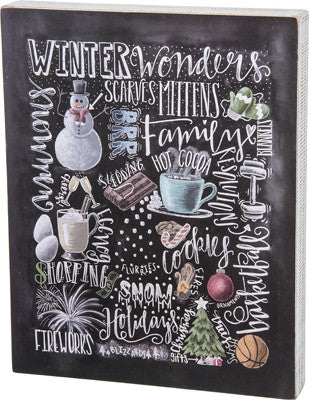 WINTER Wonders
SCARVES MITTENS
Snowmans
BRR
Family
SLEDDING
HOT COCOA
RESOLUTIONS
Cheers
Eggnog
cookies
SHOPPING
FLURRIES
basketball
SNOW
Holidays
Christmas
Tree
FIREWORKS
BLIZZARDS
GIFTS